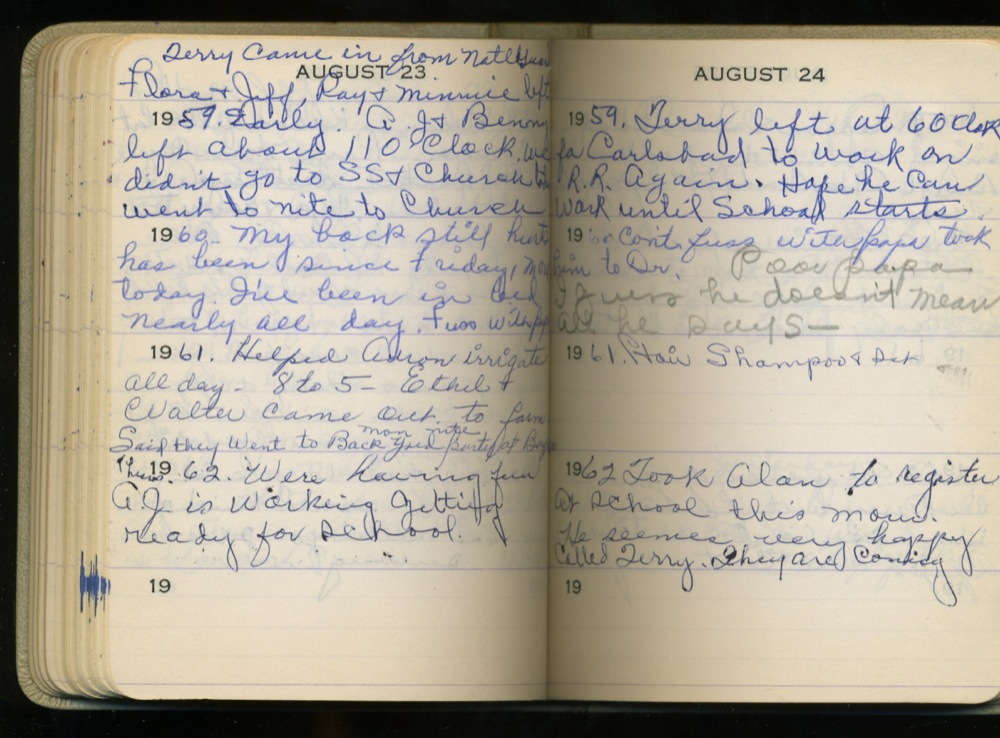 Terry Came in from Natl Guar
AUGUST 23
Flora & Jeff, Ray & Minnie left
1959. Early. A J & Benny
left about 110 Clock, we
didn't go to SS & Church
went to nite to Church
1960. My back still hurts
has been since Friday,
today. I've been in bed
nearly all day. Fuss with
1961. Helped Aaron irrigate
all day - 8 to 5 - Ethel &
Walter came out to farm
mon nite
Said they Went to Back Yard party at
Thurs. 1962. Were having fun
A.J. is working getting
ready for school.
19
AUGUST 24
1959. Terry left at 60 Clock
for Carlsbad to work on
R.R. Again. Hope he can
work until School starts.
1960 Cont. fuss with papa took
him to Dr. Poor papa
I guess he doesn't mean
all he says -
1961. Hair Shampoo & Set
1962 Took Alan to register
at school this morn.
He seemes very happy
Called Terry. They are Coming
19